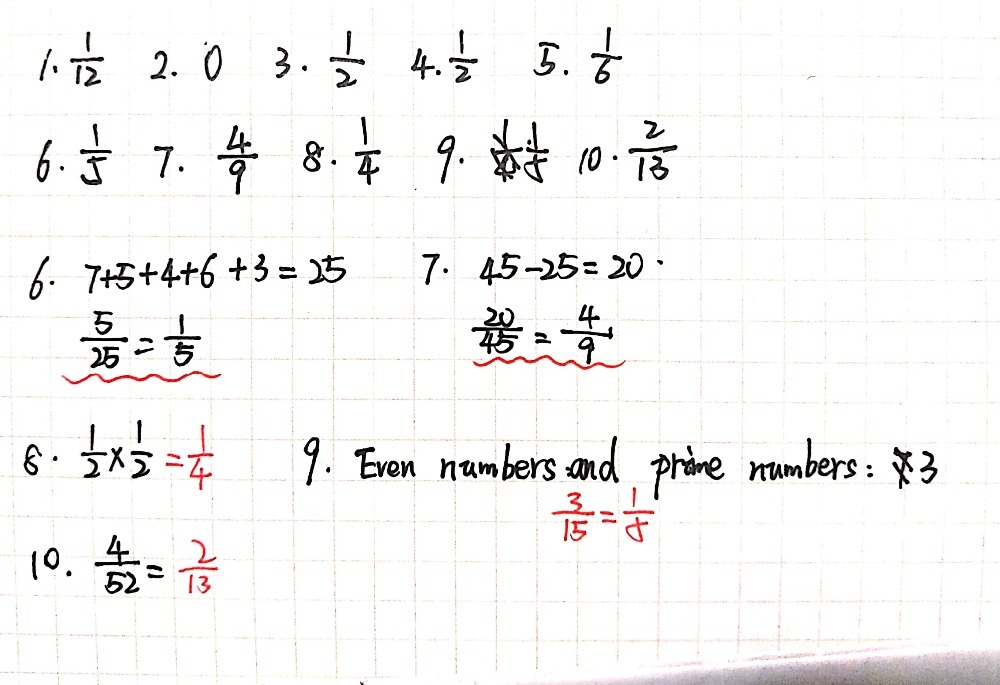 1. 1/12 2. 0 3. 1/2 4. 1/2 5. 1/6
6. 1/5 7. 4/9 8. 1/4 9. 1/5 10. 2/13
6. 7+5+4+6+3=25 7. 45-25=20.
5/25 = 1/5 20/45 = 4/9
8. 1/2 × 1/2 = 1/4 9. Even numbers and prime numbers: 3
3/15 = 1/5
10. 4/52 = 2/13